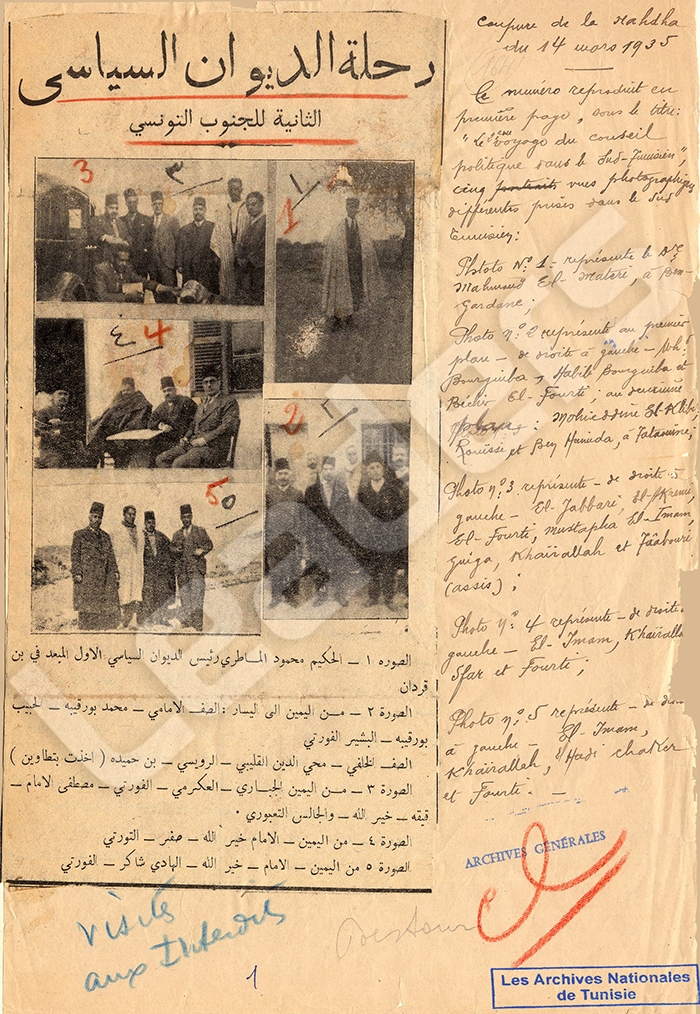 رحلة الديوان السياسي
الثانية للجنوب التونسي
3 ٣
1 ١
4 ٤
2 ٢
5 ٥
الصورة ١ — الحكيم محمود الماطري رئيس الديوان السياسي الاول المبعد في بن
قردان
الصورة ٢ — من اليمين الى اليسار : الصف الامامي — محمد بورقيبه — الحبيب
بورقيبه — البشير الفورتي
الصف الخلفي — محي الدين القليبي — الرويسي — بن حميده ( اخذت بتطاوين )
الصورة ٣ — من اليمين الجباري — العكرمي — الفورتي — مصطفى الامام —
قيقه — خير الله — والجالس التعبوري ·
الصورة ٤ — من اليمين — الامام خير الله — صفر — التورتي
الصورة ٥ من اليمين — الامام — خير الله — الهادي شاكر — الفورتي
Coupure de la Nahdha
du 14 mars 1935
Ce numéro reproduit en
première page, sous le titre:
"Le 2ème voyage du conseil
politique dans le Sud-Tunisien",
cinq portraits vues photographiques
différentes prises dans le Sud
Tunisien:
Photo N° 1 - représente le Dr
Mahmoud El-Materi, à Ben-
Gardane;
Photo n° 2 représente au premier
plan - de droite à gauche - Mh.
Bourguiba, Habib Bourguiba et
Béchir El-Fourti; au deuxième
: Mohieddine El-Klibi
Rouissi et Ben Hamida, à Tataouine;
Photo n° 3 représente - de droite à
gauche - El-Jabbari, El-Akremi,
El-Fourti, Mustapha El-Imam,
Guiga, Khaïrallah et Tâabouri
(assis);
Photo n° 4 représente - de droite à
gauche - El-Imam, Khaïrallah
Sfar et Fourti;
Photo n° 5 représente - de droite
à gauche - El-Imam,
Khaïrallah, Hadi Chaker
et Fourti. -
ARCHIVES GÉNÉRALES
visite
aux Interdits
Destour
1
Les Archives Nationales
de Tunisie
Leaders